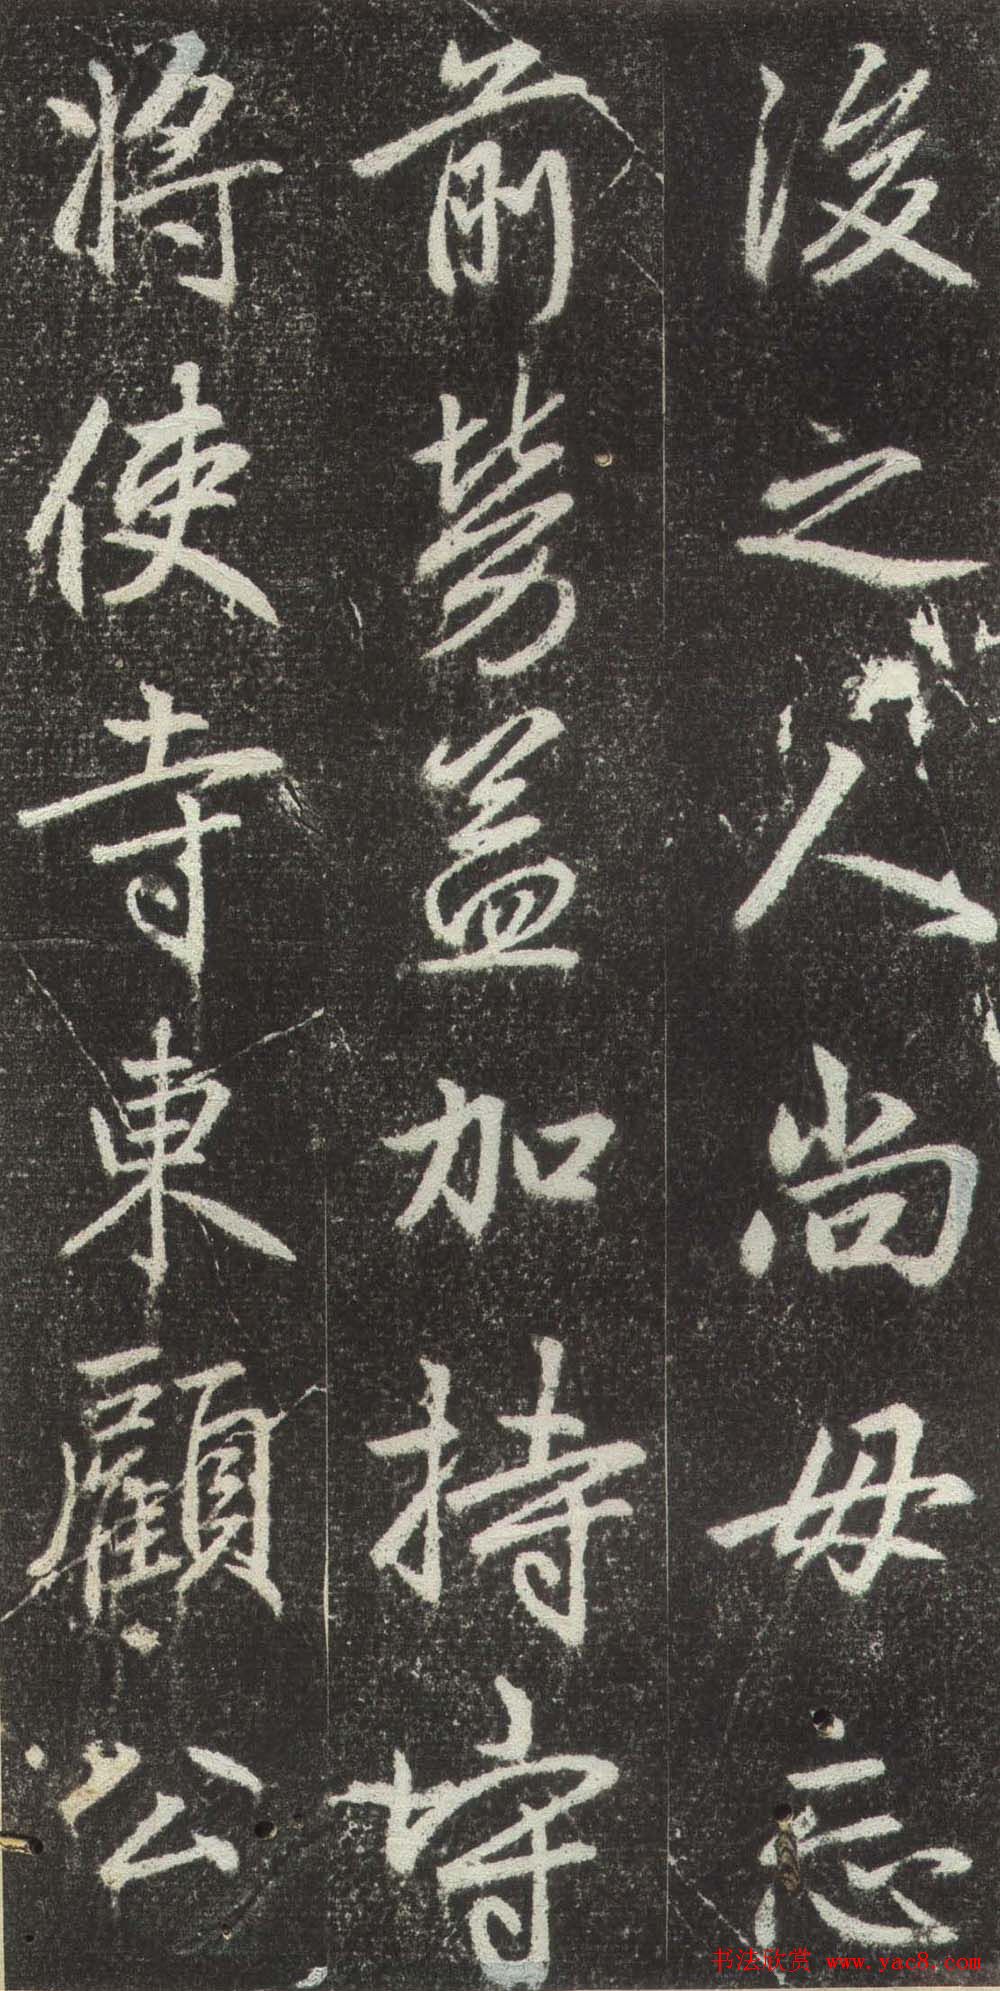 後之人尚毋忘
前勞益加持守
將使寺東顧公
书法欣赏 www.yac8.com